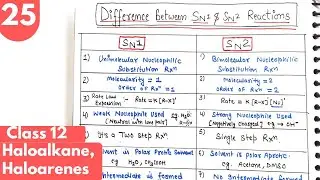 25
Class 12
Haloalkane,
Haloarenes
Difference between SN1 & SN2 Reactions
SN1
SN2
1) Unimolecular Nucleophilic
Substitution Rxn
1) Bimolecular Nucleophilic
Substitution Rxn
2) Molecularity = 1
Order of Rxn = 1
2) Molecularity = 2
Order of Rxn = 2
3) Rate Law Expression - Rate = K[R-X]
3) Rate = K[R-X][Nu]
4) Weak Nucleophile Used
(Neutral with lone pair)
4) Strong Nucleophile Used
(Negatively charged)
5) It is a Two Step Rxn
5) Single Step Rxn
6) Solvent is Polar Protic
eg. H2O, CH3OH
6) Solvent is Polar Aprotic
eg. Acetone, DMSO
Intermediate is formed
No Intermediate formed